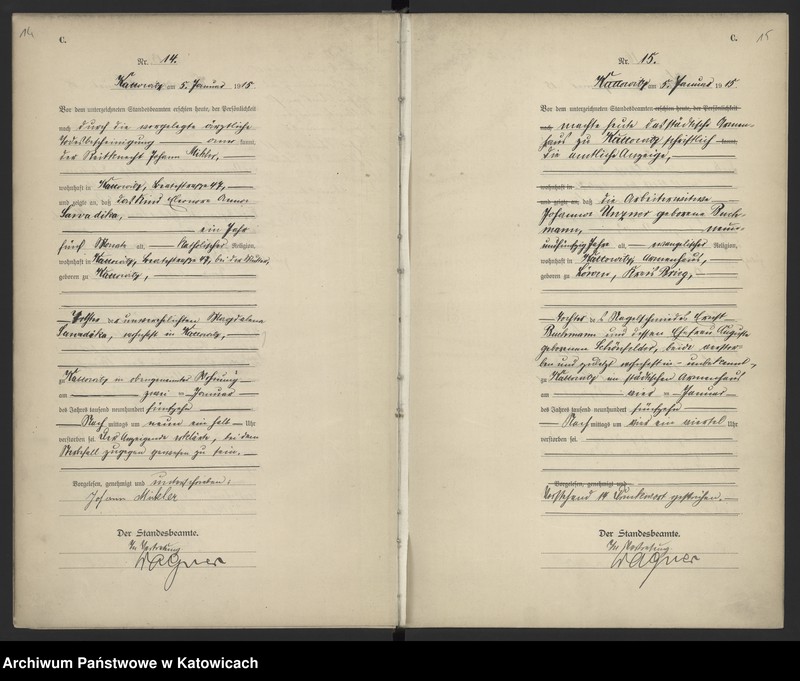 14
C.
Nr. 14.
Kattowitz am 5. Januar 1915
Vor dem unterzeichneten Standesbeamten erschien heute, der Persönlichkeit
nach durch die vorgelegte ärztliche
Todesbescheinigung kannt,
der Johann
wohnhaft in Kattowitz,
und zeigte an, daß
ein Jahr
fünf Monate alt, katholischer Religion,
wohnhaft in Kattowitz, bei der Mutter,
geboren zu Kattowitz,
Tochter der unverehelichten Magdalena
wohnhaft in Kattowitz,
zu Kattowitz in obengenannter Wohnung
am zwei Januar
des Jahres tausend neunhundert fünfzehn
Nach mittags um neun ein halb Uhr
verstorben sei. Der Anzeigende erklärte, bei dem
Sterbfall zugegen gewesen zu sein.
Vorgelesen, genehmigt und unterschrieben:
Johann
Der Standesbeamte.
In Vertretung
Wagner
15
C.
Nr. 15.
Kattowitz am 5. Januar 1915
Vor dem unterzeichneten Standesbeamten erschien heute, der Persönlichkeit
nach machte heute das städtische Armen-
haus zu Kattowitz schriftlich kannt,
die amtliche Anzeige,
wohnhaft in
und zeigte an, daß die Arbeiterwitwe
Johanna geborene Buch-
mann, neun-
undfünfzig Jahre alt, evangelischer Religion,
wohnhaft in Kattowitz, Armenhaus,
geboren zu Löwen, Kreis Brieg,
Tochter des Nagelschmiedes Ernst
Buchmann und dessen Ehefrau Auguste
geborenen Schönfelder, beide verstor-
ben und zuletzt wohnhaft in - unbekannt,
zu Kattowitz im städtischen Armenhaus
am vier Januar
des Jahres tausend neunhundert fünfzehn
Nach mittags um vier ein viertel Uhr
verstorben sei.
Vorgelesen, genehmigt und
Vorstehend 14 Druckworte gestrichen.
Der Standesbeamte.
In Vertretung
Wagner
Archiwum Państwowe w Katowicach